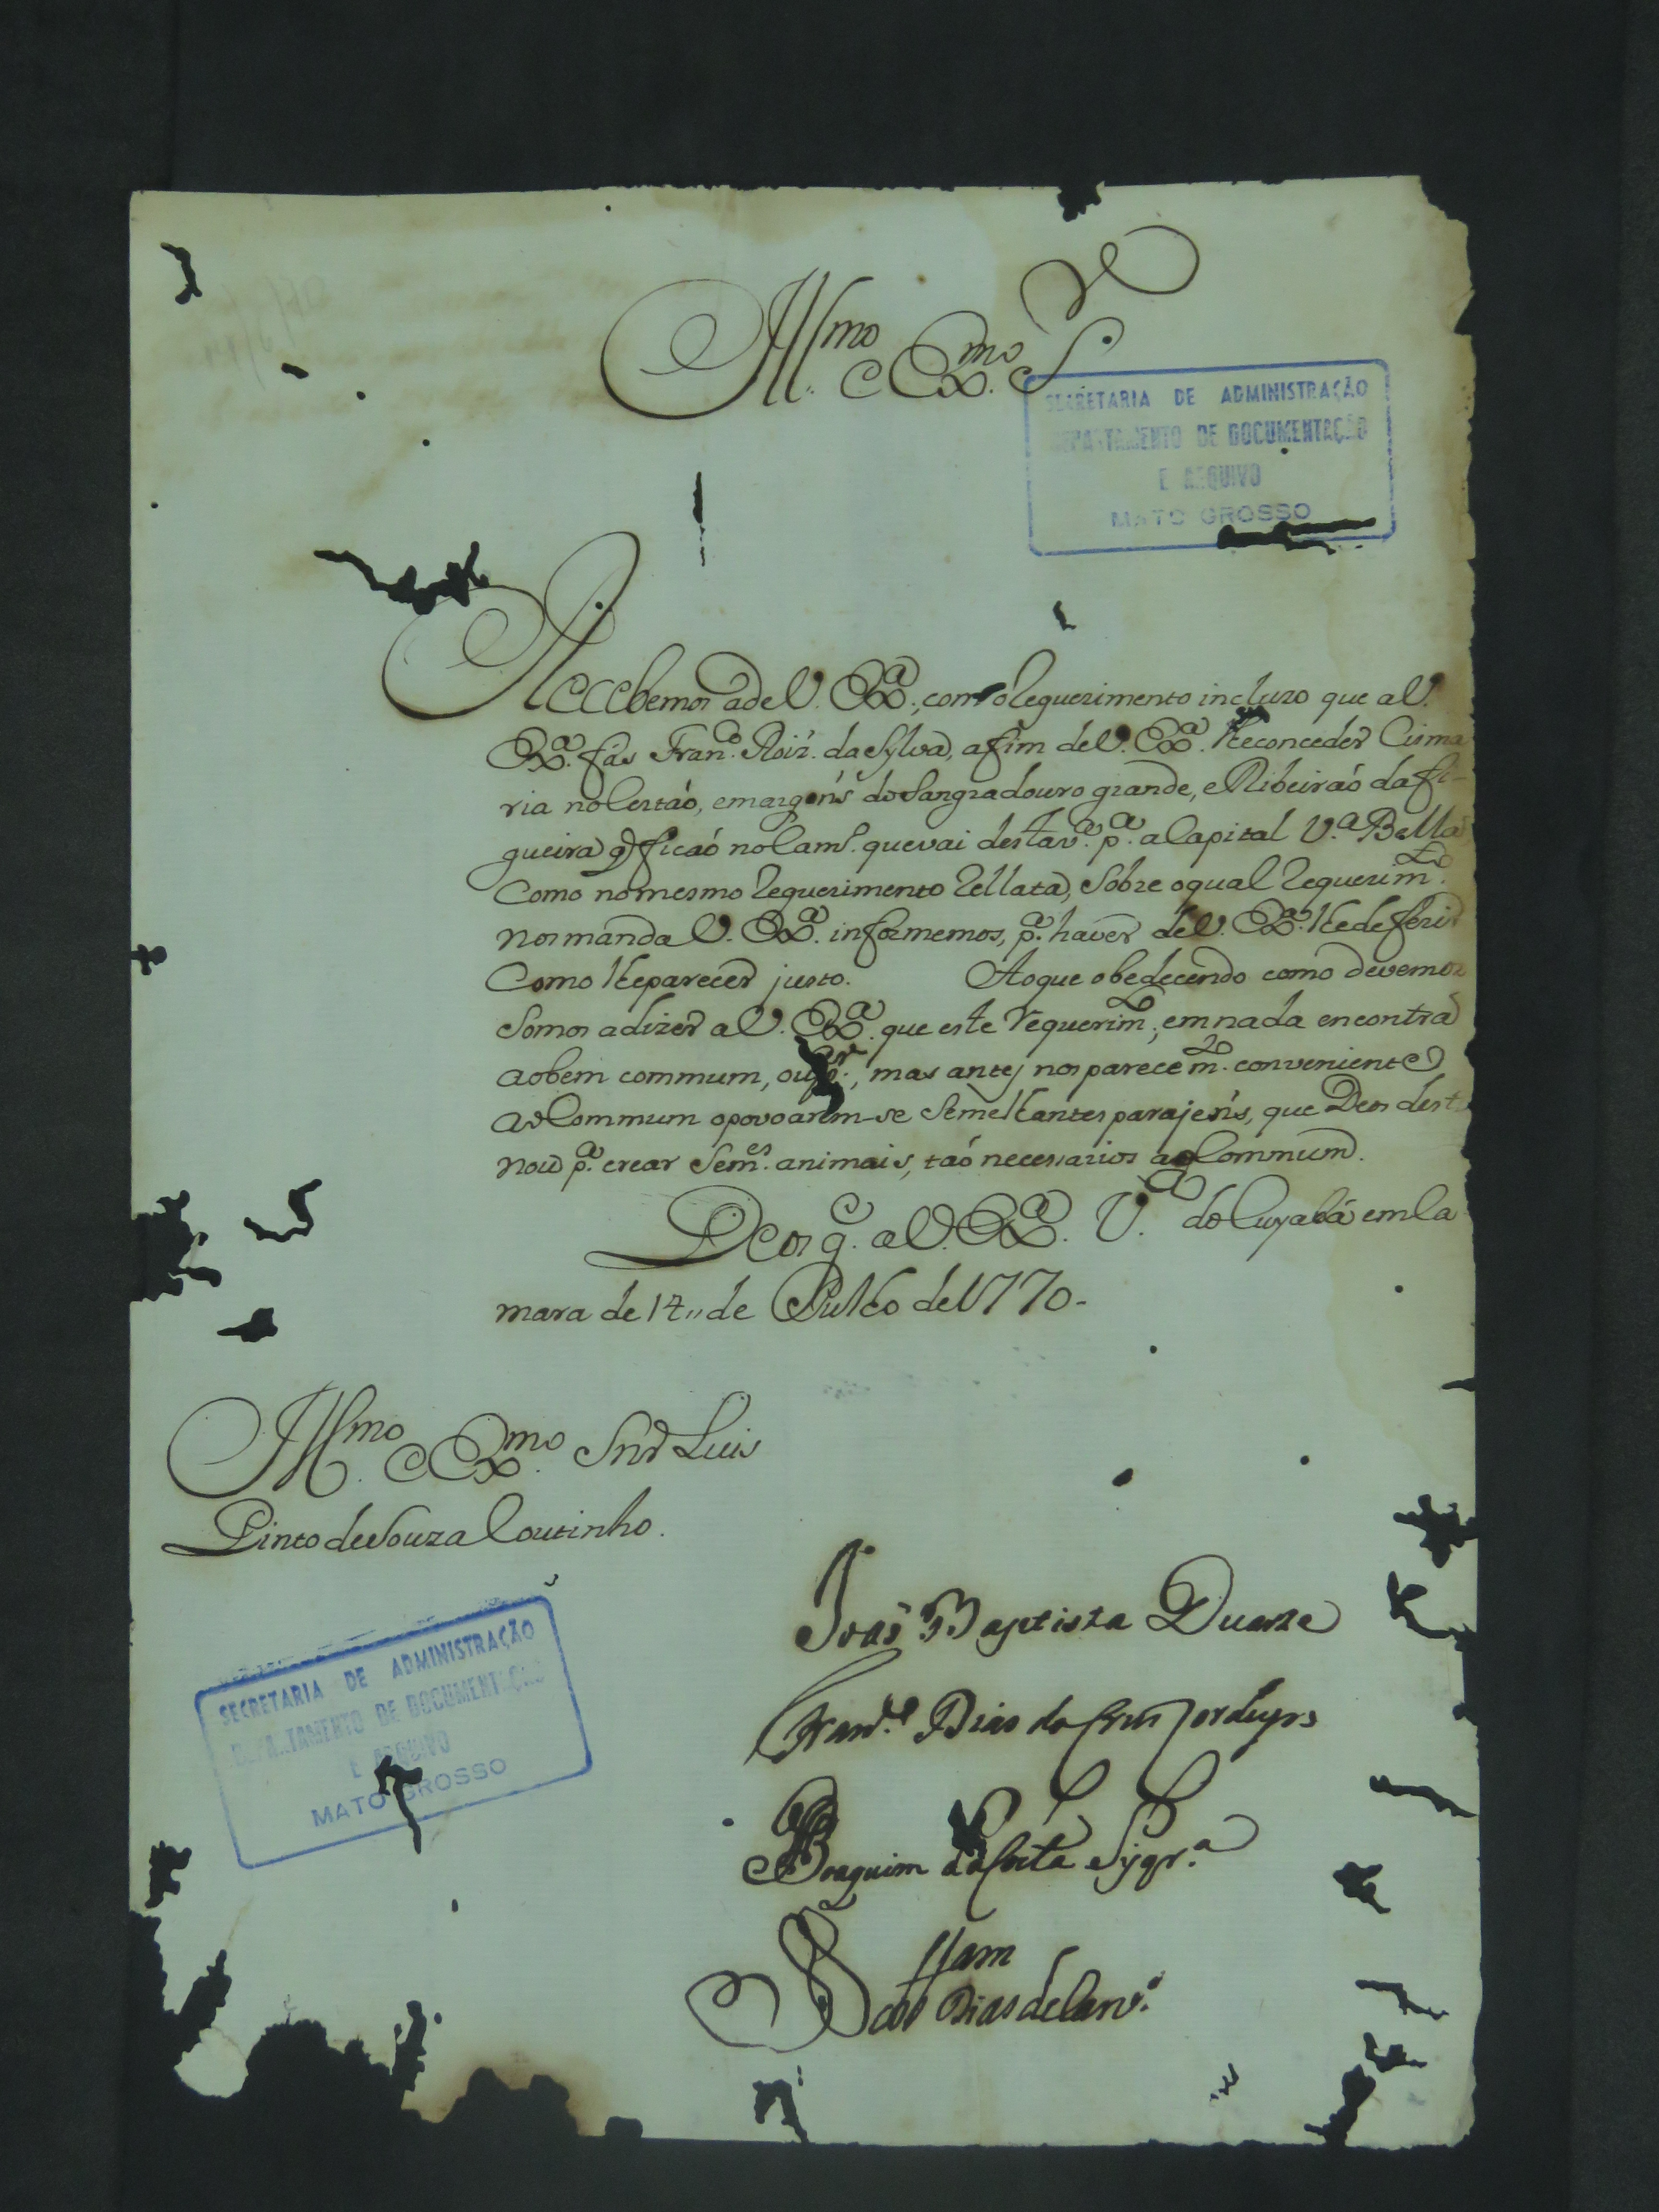 Ill.mo e Ex.mo S.
SECRETARIA DE ADMINISTRAÇÃO
DEPARTAMENTO DE DOCUMENTAÇÃO
E ARQUIVO
MATO GROSSO
Recebemos a de V. Ex.a, com o requerimento incluzo que a V.
Ex.a fás Fran.co Roiz. da Sylva, a fim de V. Ex.a lhe conceder Cisma
ria no Certaó, e margens do Sangradouro grande, e Ribeiraó da fi-
gueira q ficaó no Cam.o que vai desta v.a p.a a Capital V.a Bella
Como no mesmo requerimento rellata, Sobre o qual requerim.to
nos manda V. Ex.a informemos, p.a haver de V. Ex.a lhe deferir
Como lhe parecer justo. Ao que obedecendo como devemos
Somos a dizer a V. Ex.a que este requerim.to, em nada encontra
ao bem commum, ou, mas antes nos parece m.to conveniente
ao Commum o povoarem-se Semelhantes parajens, que Deos desti
nou p.a crear Sem.es animais, taó necessarios ao Commum.
Deos g.e a V. Ex.a V.a do Cuyabá em Ca
mara de 14,, de Julho de 1770-
Ill.mo e Ex.mo Snr Luis
Pinto de Souza Coutinho.
Joaó Baptista Duarte
SECRETARIA DE ADMINISTRAÇÃO
DEPARTAMENTO DE DOCUMENTAÇÃO
E ARQUIVO
MATO GROSSO
Fran.co Dias
Joaquim da Costa Siqr.a
Dias de Carv.o